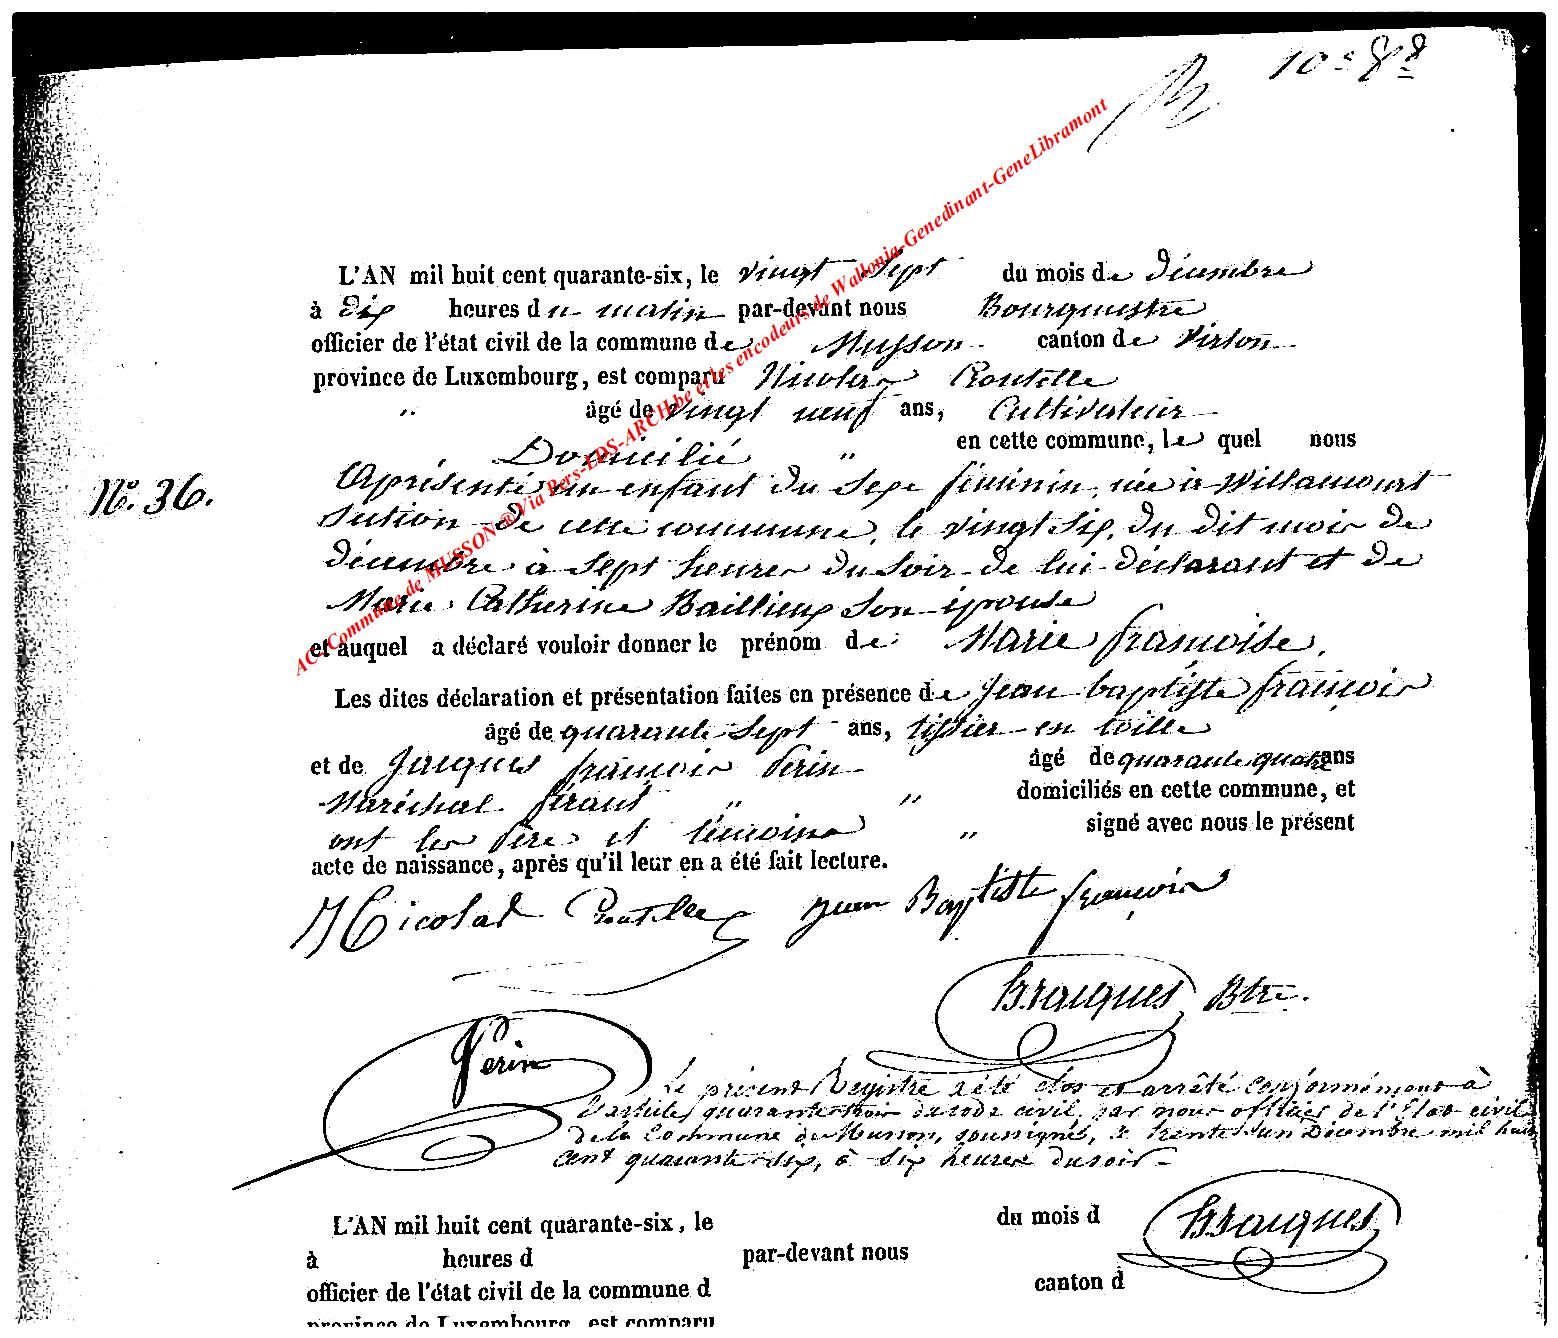 10 s
L'AN mil huit cent quarante-six, le vingt sept du mois de décembre
à Dix heures du matin par-devant nous Bourgmestre
officier de l'état civil de la commune de Musson canton de Virton
province de Luxembourg, est comparu Nicolas Routelle
" âgé de vingt neuf ans, Cultivateur
Domicilié " en cette commune, le quel nous
N°. 36.
a présenté un enfant du sexe féminin, née à Willancourt
section de cette commune, le vingt six, du dit mois de
décembre à sept heures du soir de lui déclarant et de
Marie Catherine Baillieux son épouse
et auquel a déclaré vouloir donner le prénom de Marie françoise.
Les dites déclaration et présentation faites en présence de Jean baptiste françois
âgé de quarante sept ans, tissier en toille
et de Jacques françois Perin âgé de quarante quatre ans
Maréchal férant " " domiciliés en cette commune, et
ont les Père et témoins " signé avec nous le présent
acte de naissance, après qu'il leur en a été fait lecture.
Nicolas Routelle Jean Baptiste françois
Perin
Le présent Registre a été clos et arrêté conformément à
l'article quarante trois du code civil, par nous officier de l'Etat civil
de la Commune de Musson, soussigné, le trente un Décembre mil huit
cent quarante-six, à six heures du soir
L'AN mil huit cent quarante-six, le du mois d
à heures d par-devant nous
officier de l'état civil de la commune d canton d
province de Luxembourg, est comparu
AC-Commune de MUSSON ® Via Pers-LDS-ARCH.be et les encodeurs de Wallonia-Genedinant-GeneLibramont